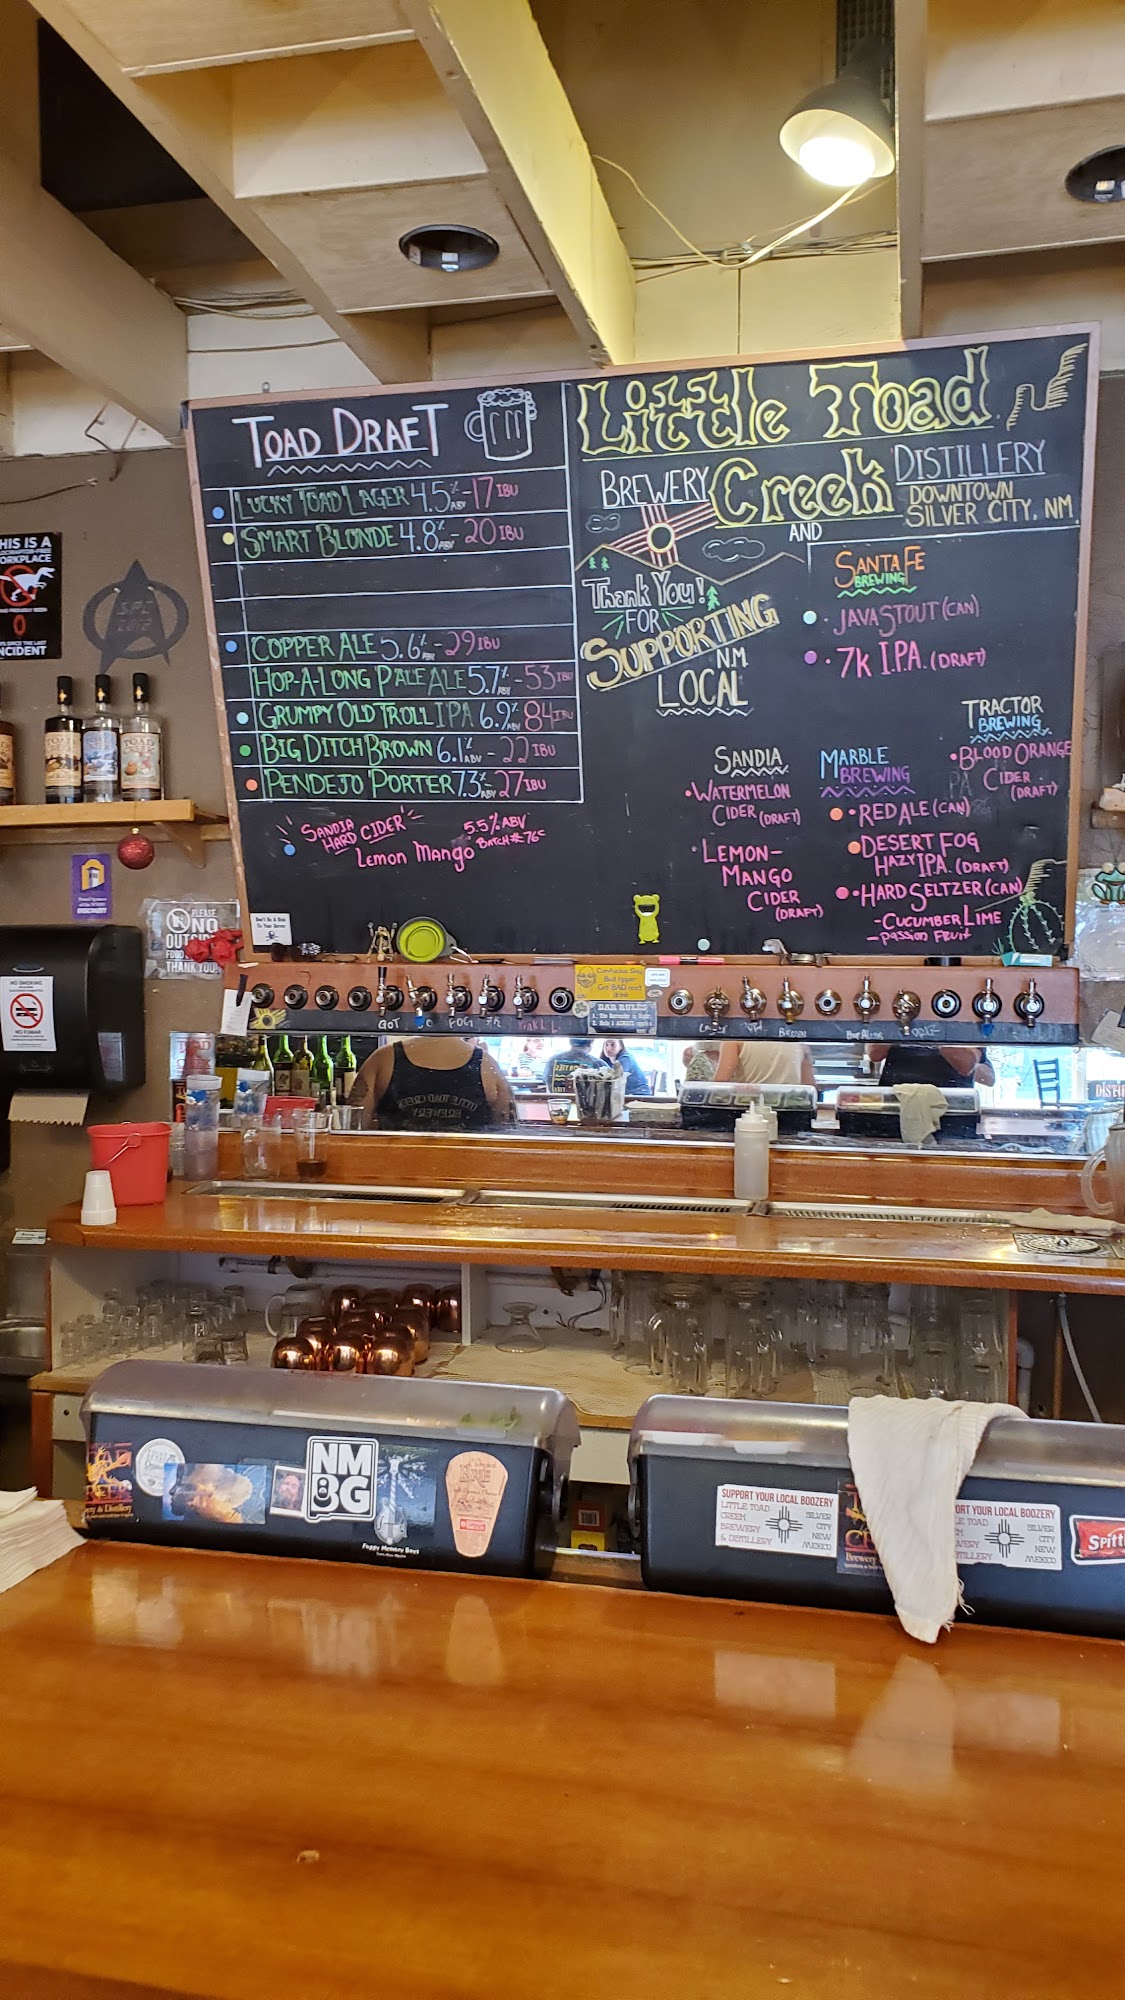 TOAD DRAFT
LUCKY TOAD LAGER 4.5% ABV - 17 IBU
SMART BLONDE 4.8% ABV - 20 IBU
COPPER ALE 5.6% ABV - 29 IBU
HOP-A-LONG PALE ALE 5.7% ABV - 53 IBU
GRUMPY OLD TROLL IPA 6.9% ABV 84 IBU
BIG DITCH BROWN 6.1% ABV - 22 IBU
PENDEJO PORTER 7.3% ABV 27 IBU
SANDIA
HARD CIDER
Lemon Mango
5.5% ABV
BATCH #: 76c
Little Toad
BREWERY Creek DISTILLERY
AND
DOWNTOWN
SILVER CITY, NM.
Thank You!
FOR
SUPPORTING
N.M.
LOCAL
SANTA FE
BREWING
• JAVA STOUT (CAN)
• 7K I.P.A. (DRAFT)
TRACTOR
BREWING
• BLOOD ORANGE
CIDER
(DRAFT)
SANDIA
• WATERMELON
CIDER (DRAFT)
• LEMON-
MANGO
CIDER
(DRAFT)
MARBLE
BREWING
• RED ALE (CAN)
• DESERT FOG
HAZY IPA. (DRAFT)
• HARD SELTZER (CAN)
- CUCUMBER LIME
- PASSION FRUIT
THIS IS A
WORKPLACE
INCIDENT
PLEASE
NO
THANK YOU!
NO SMOKING
NO FUMAR
Don't Be A Dick
To Your Server
BAR RULES
GOT
FOG
7K
TOAD
LITTLE TOAD CREEK
BREWERY
NM
BG
Foggy Memory Boys
SUPPORT YOUR LOCAL BOOZERY
LITTLE TOAD
CREEK
BREWERY
& DISTILLERY
SILVER
CITY
NEW
MEXICO
ORT YOUR LOCAL BOOZERY
SILVER
CITY
NEW
MEXICO